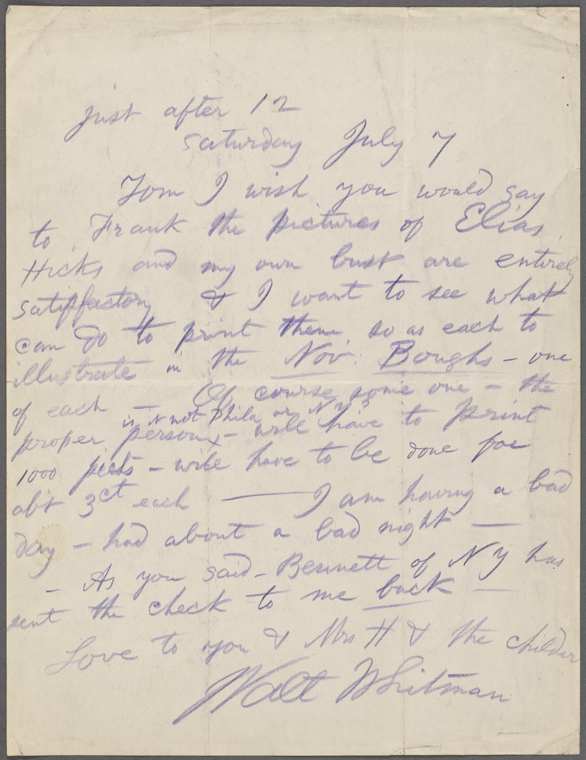 just after 12
Saturday July 7
Tom I wish you would say
to Frank the pictures of Elias
Hicks and my own bust are entirely
satisfactory & I want to see what
can do to print them so as each to
illustrate in the Nov: Boughs - one
of each - Of course some one - the
is N not Phila or N Y?
proper person - will have to print
1000 - will have to be done for
abt 3ct each — I am having a bad
day - had about a bad night —
- As you said - Bennett of N Y has
sent the check to me back —
Love to you & Mrs H & the childer
Walt Whitman